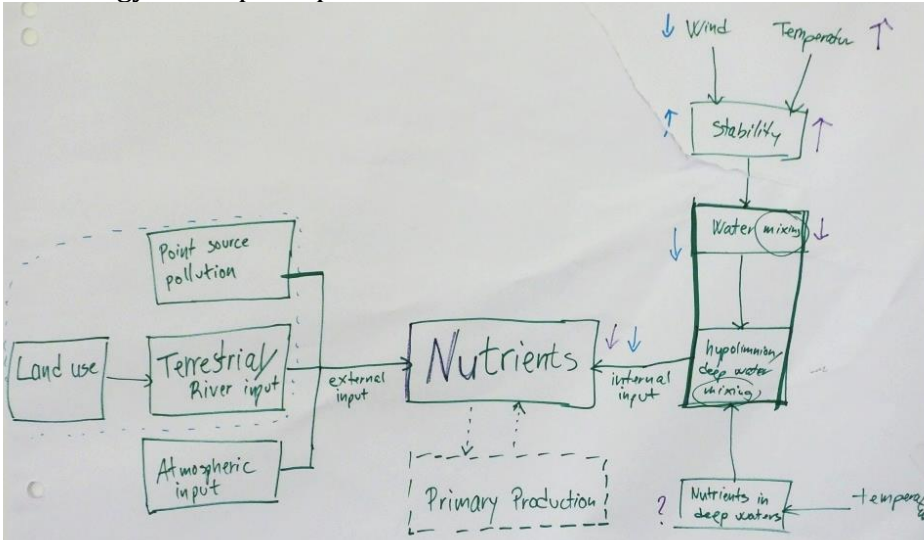 ↓ Wind
Temperatur ↑
↑ Stability ↑
Water mixing ↓
↓
hypolimnion/
deep water
mixing
Point source
pollution
Land use
Terrestrial/
River input
Atmospheric
input
external
input
Nutrients ↓ ↓
internal
input
Primary Production
? Nutrients in
deep waters